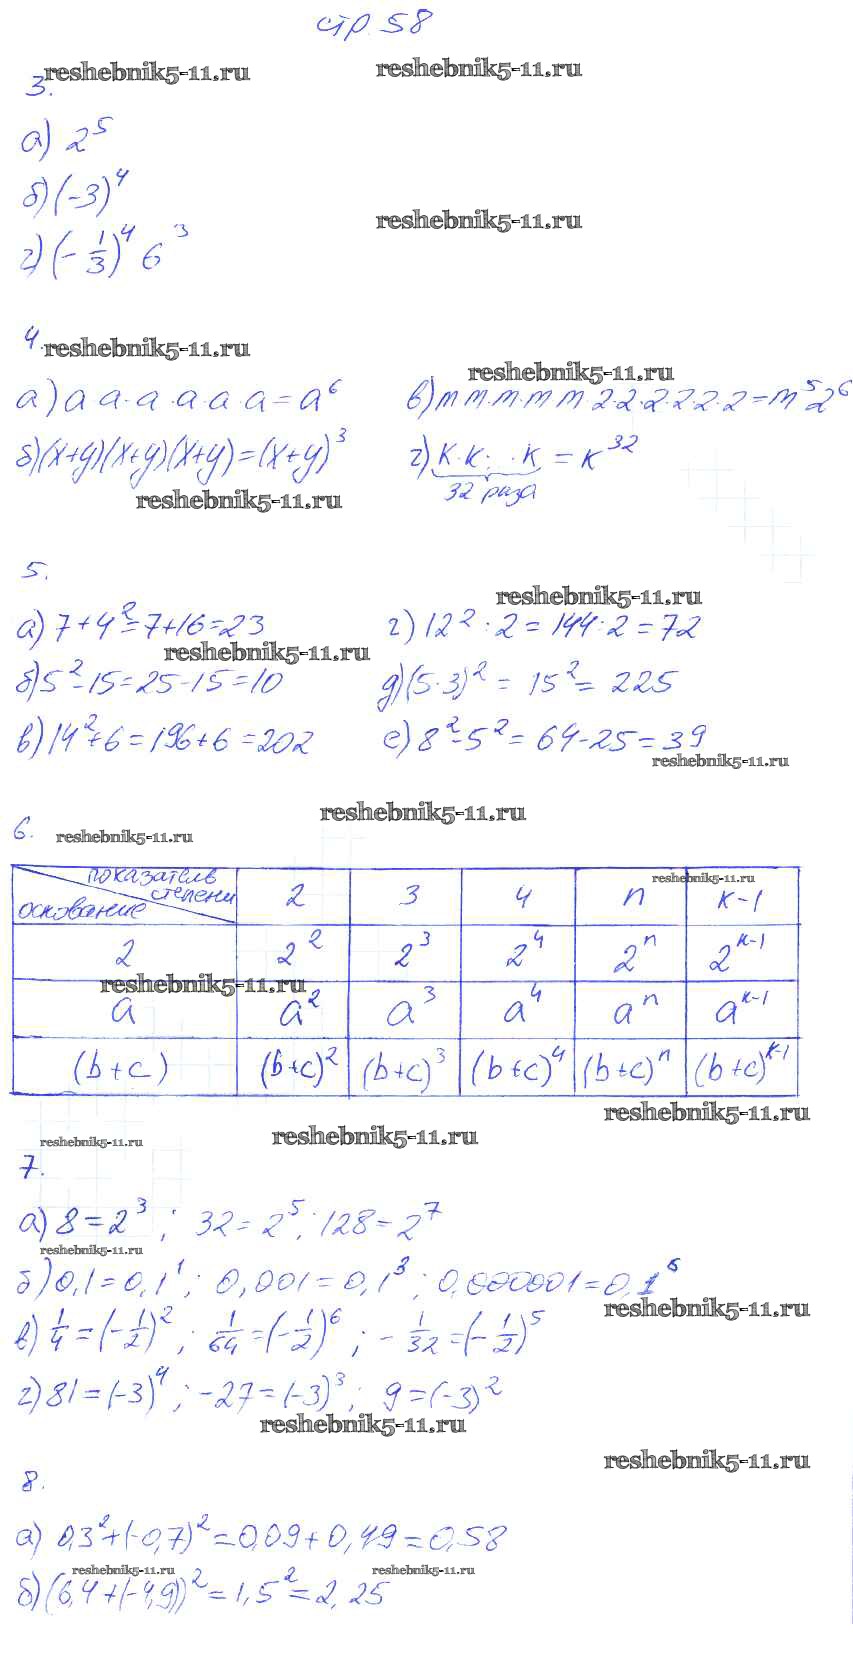 стр. 58
reshebnik5-11.ru reshebnik5-11.ru
3.
а) 2⁵
б) (-3)⁴
reshebnik5-11.ru
г) (-1/3)⁴ 6³
4. reshebnik5-11.ru
reshebnik5-11.ru
а) a a·a·a·a a = a⁶ в) m m·m·m m 2·2·2·2·2·2 = m⁵2⁶
б) (x+y)(x+y)(x+y) = (x+y)³ г) k·k· ·k = k³²
32 раза
reshebnik5-11.ru
5.
reshebnik5-11.ru
а) 7+4²=7+16=23 г) 12²:2=144:2=72
reshebnik5-11.ru
б) 5²-15=25-15=10 д) (5·3)²=15²=225
в) 14²+6=196+6=202 е) 8²-5²=64-25=39
reshebnik5-11.ru
reshebnik5-11.ru
6. reshebnik5-11.ru
показатель степени основание 2 3 4 n k-1
reshebnik5-11.ru
2 2² 2³ 2⁴ 2ⁿ 2ᵏ⁻¹
reshebnik5-11.ru
a a² a³ a⁴ aⁿ aᵏ⁻¹
(b+c) (b+c)² (b+c)³ (b+c)⁴ (b+c)ⁿ (b+c)ᵏ⁻¹
reshebnik5-11.ru
reshebnik5-11.ru reshebnik5-11.ru
7.
а) 8=2³; 32=2⁵; 128=2⁷
reshebnik5-11.ru
б) 0,1=0,1¹; 0,001=0,1³; 0,000001=0,1⁶
reshebnik5-11.ru
в) 1/4=(-1/2)²; 1/64=(-1/2)⁶; -1/32=(-1/2)⁵
г) 81=(-3)⁴; -27=(-3)³; 9=(-3)²
reshebnik5-11.ru
reshebnik5-11.ru
8.
а) 0,3²+(-0,7)²=0,09+0,49=0,58
reshebnik5-11.ru reshebnik5-11.ru
б) (6,4+(-4,9))²=1,5²=2,25